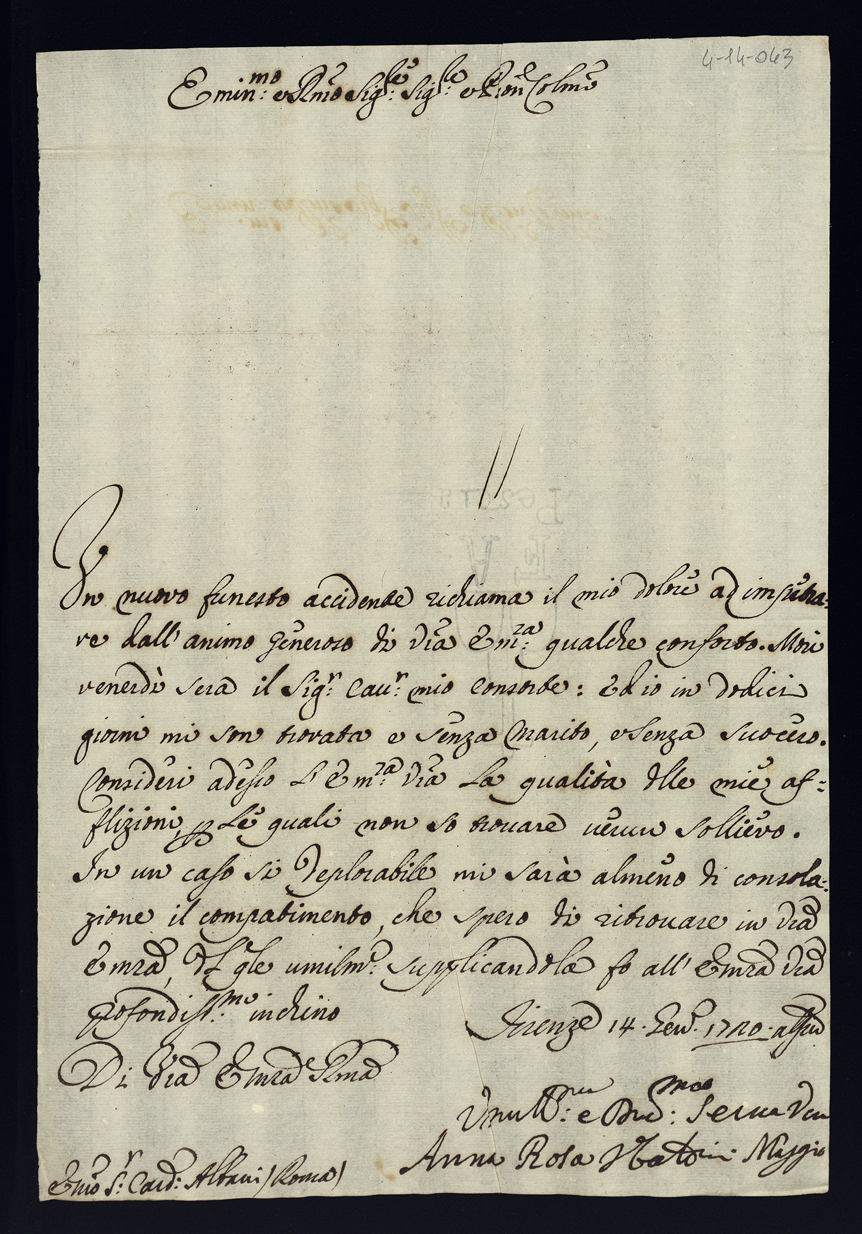 4-14-063
Emin:mo e Rmo Sigre: Sigre e Pron Colmo
Un nuovo funesto accidente richiama il mio dolore ad impetra-
re dall'animo generoso di Vra Em:za qualche conforto. Morì
venerdì sera il Sigr Caur mio Consorte: Ed io in dodici
giorni mi son trovata e senza Marito, e senza suocero.
Consideri adesso l'Em:za Vra la qualità delle mie af=
flizioni, p le quali non so trovare verun sollievo.
In un caso sì deplorabile mi sarà almeno di consola=
zione il compatimento, che spero di ritrovare in Vra
Emza, del qle umilme supplicandola fo all'Emza Vra
profondiss.mo inchino
Firenze 14. Gen. 1720
Di Vra Emza Rma
e Serua
Anna Rosa
Emo Sr: Card: Albani (Roma)